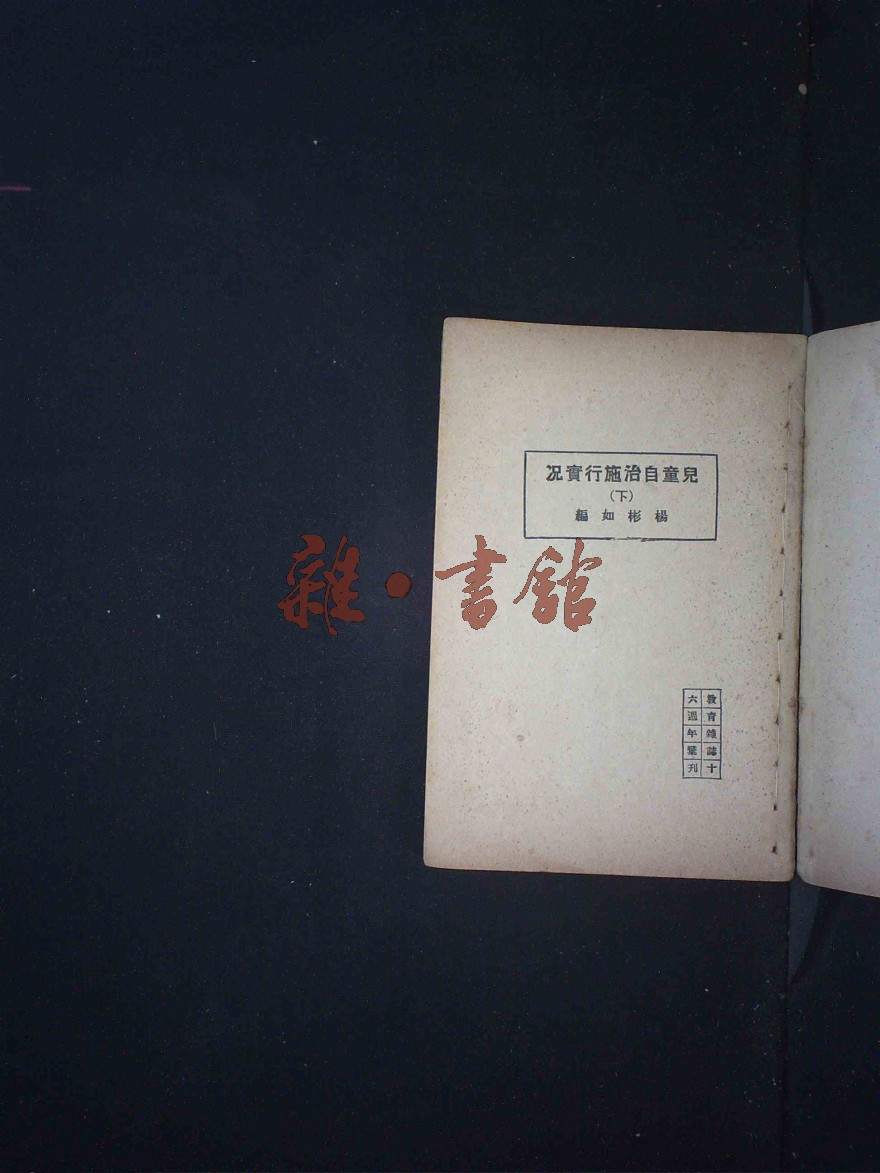 兒童自治施行實況
(下)
楊彬如編
雜·書館
教育雜誌十
六週年彙刊